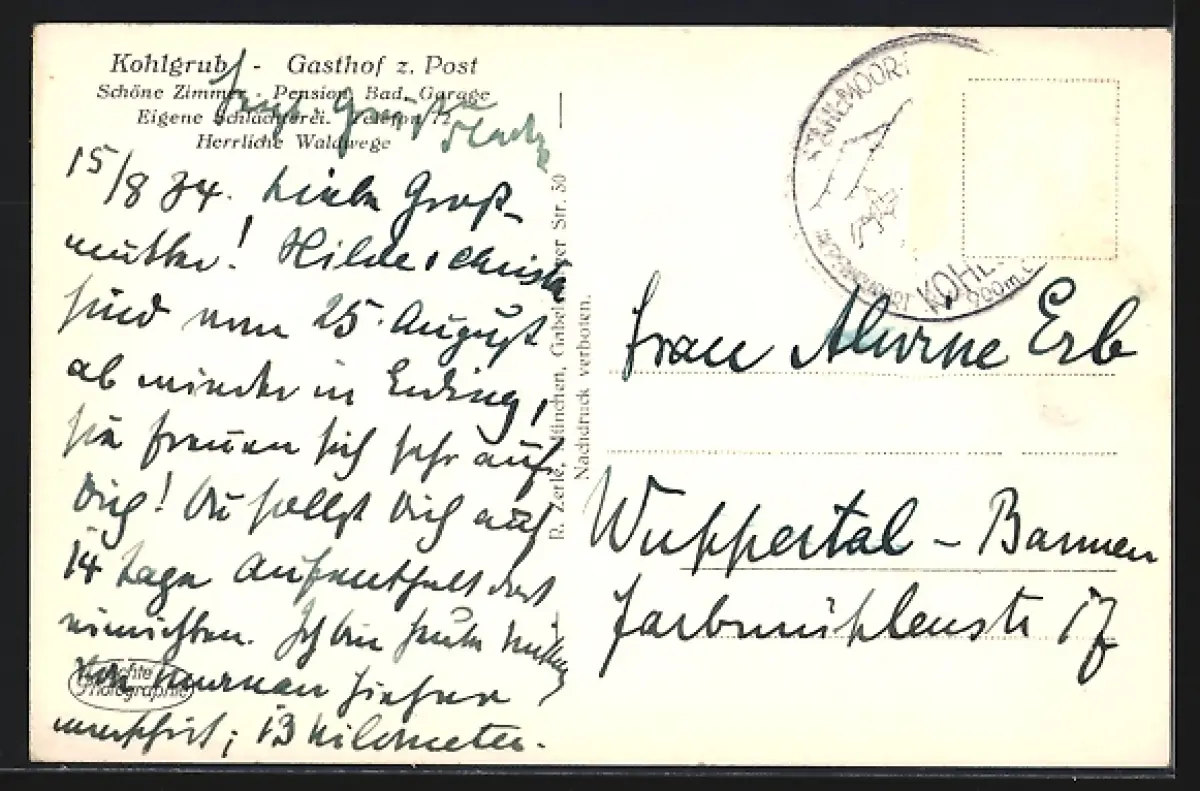 Kohlgrub - Gasthof z. Post
Schöne Zimmer - Pension, Bad, Garage
Eigene Schlächterei. Telefon 72
Herrliche Waldwege
15/8 34. Liebe Groß-
mutter! Hilde & Christa
sind vom 25. August
ab wieder in
sie freuen sich sehr auf
Dich! Du sollst Dich auf
14 Tage Aufenthalt dort
einrichten. Ich bin heute
von Murnau hieher
marschirt; 13 Kilometer.
Echte
Photographie
R. Zerle, München, Gabelsberger Str. 50
Nachdruck verboten.
KOHL
900m
Frau Alwine Erb
Wuppertal - Barmen
Farbmühlenstr 17